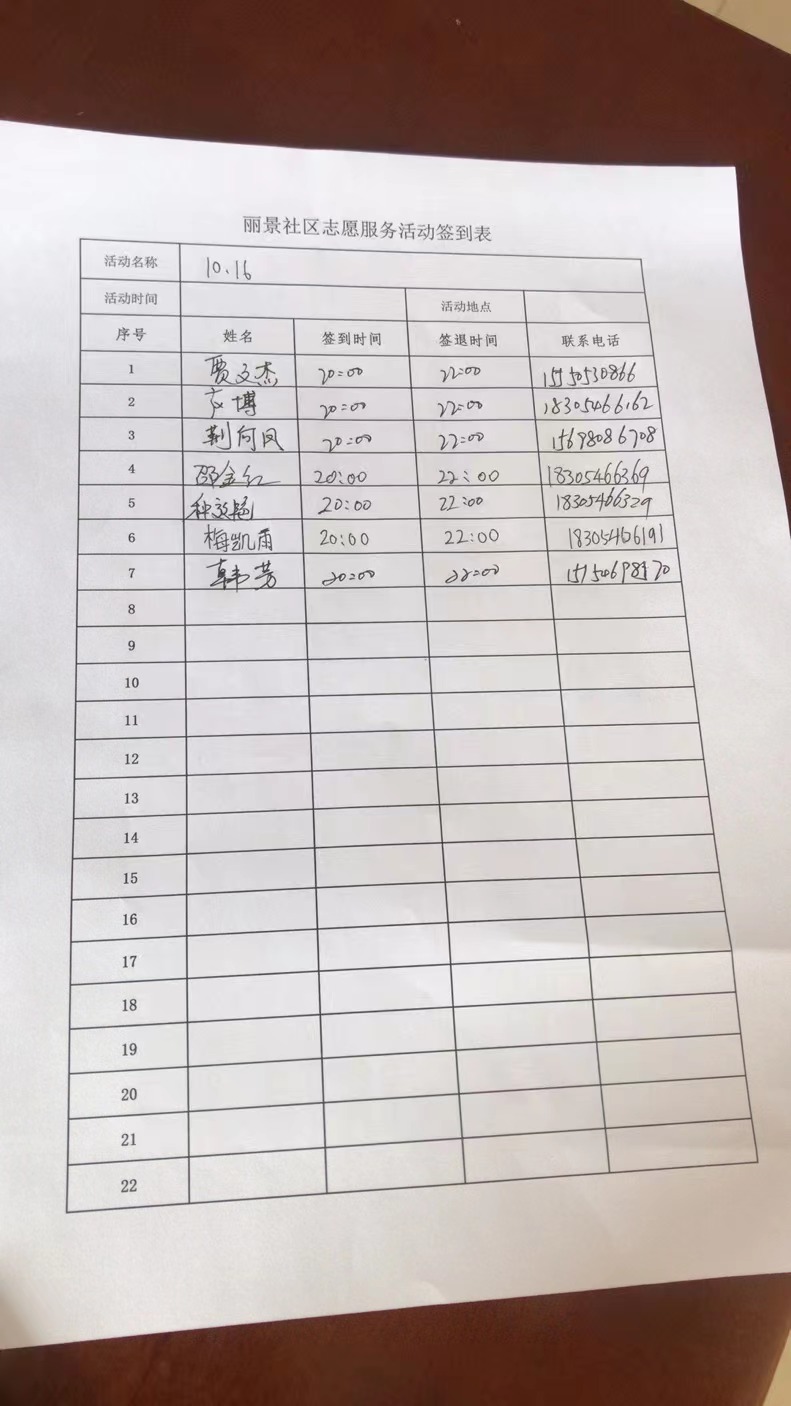 丽景社区志愿服务活动签到表
活动名称 10.16
活动时间 活动地点
序号 姓名 签到时间 签退时间 联系电话
1 贾文杰 20:00 22:00 15150530866
2 博 20:00 22:00 18305466162
3 荆向凤 20:00 22:00 15698086708
4 邵金红 20:00 22:00 18305466369
5 20:00 22:00 18305466329
6 梅凯雨 20:00 22:00 18305466191
7 韩芳 20:00 22:00
8
9
10
11
12
13
14
15
16
17
18
19
20
21
22